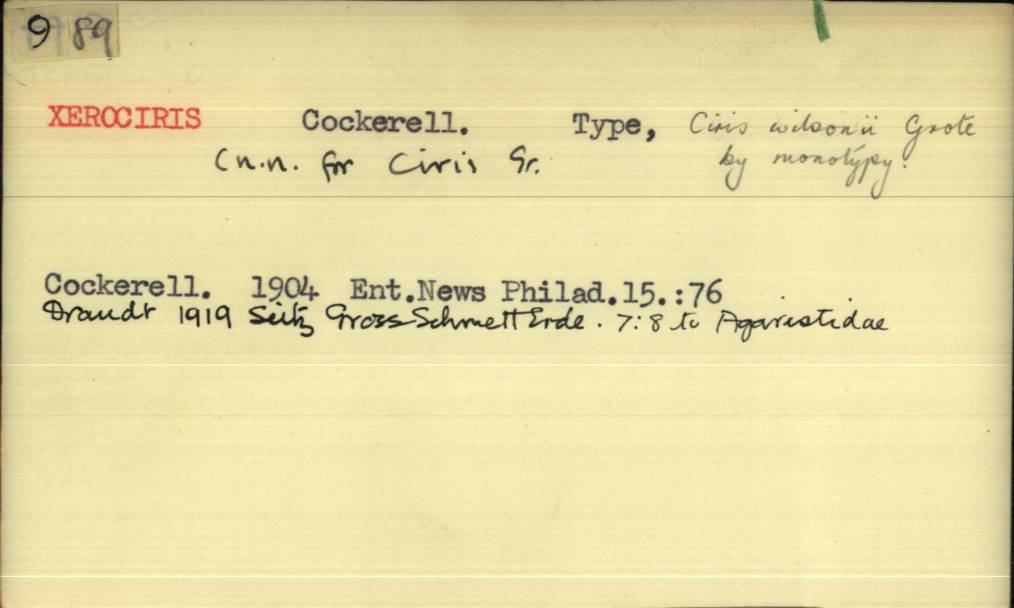 9 89
XEROCIRIS Cockerell. Type, Ciris wilsonii Grote
(n.n. for Ciris Gr. by monotypy.
Cockerell. 1904 Ent.News Philad.15.:76
Draudt 1919 Seitz Gross-Schmett Erde. 7:8 to Agaristidae